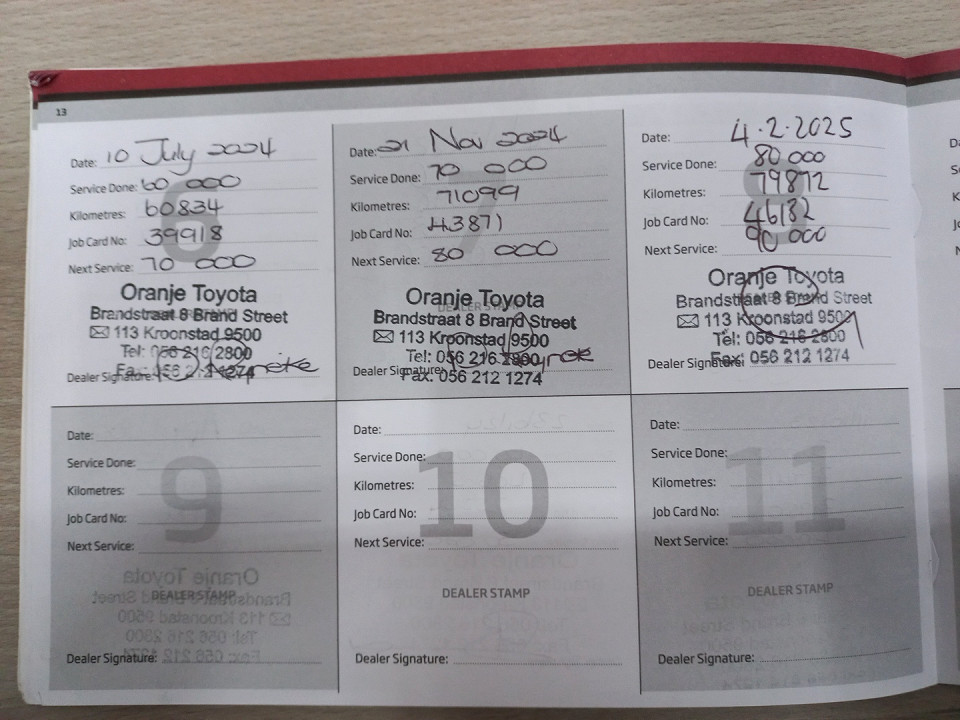 13
Date: 10 July 2024
Service Done: 60 000
Kilometres: 60834
Job Card No: 39918
Next Service: 70 000
6
Oranje Toyota
Brandstraat 8 Brand Street
✉ 113 Kroonstad 9500
Tel: 056 216 2800
Fax: 056 212 1274
Dealer Signature:
Date: 21 Nov 2024
Service Done: 70 000
Kilometres: 71099
Job Card No: 43871
Next Service: 80 000
7
DEALER STAMP
Oranje Toyota
Brandstraat 8 Brand Street
✉ 113 Kroonstad 9500
Tel: 056 216 2800
Dealer Signature:
Fax: 056 212 1274
Date: 4.2.2025
Service Done: 80 000
Kilometres: 79872
Job Card No: 46182
Next Service: 90 000
8
Oranje Toyota
Brandstraat 8 Brand Street
✉ 113 Kroonstad 9502
Tel: 056 216 2800
Dealer Signature:
Fax: 056 212 1274
Date:
Service Done:
Kilometres:
Job Card No:
Next Service:
9
DEALER STAMP
Dealer Signature:
Date:
Service Done:
Kilometres:
Job Card No:
Next Service:
10
DEALER STAMP
Dealer Signature:
Date:
Service Done:
Kilometres:
Job Card No:
Next Service:
11
DEALER STAMP
Dealer Signature: